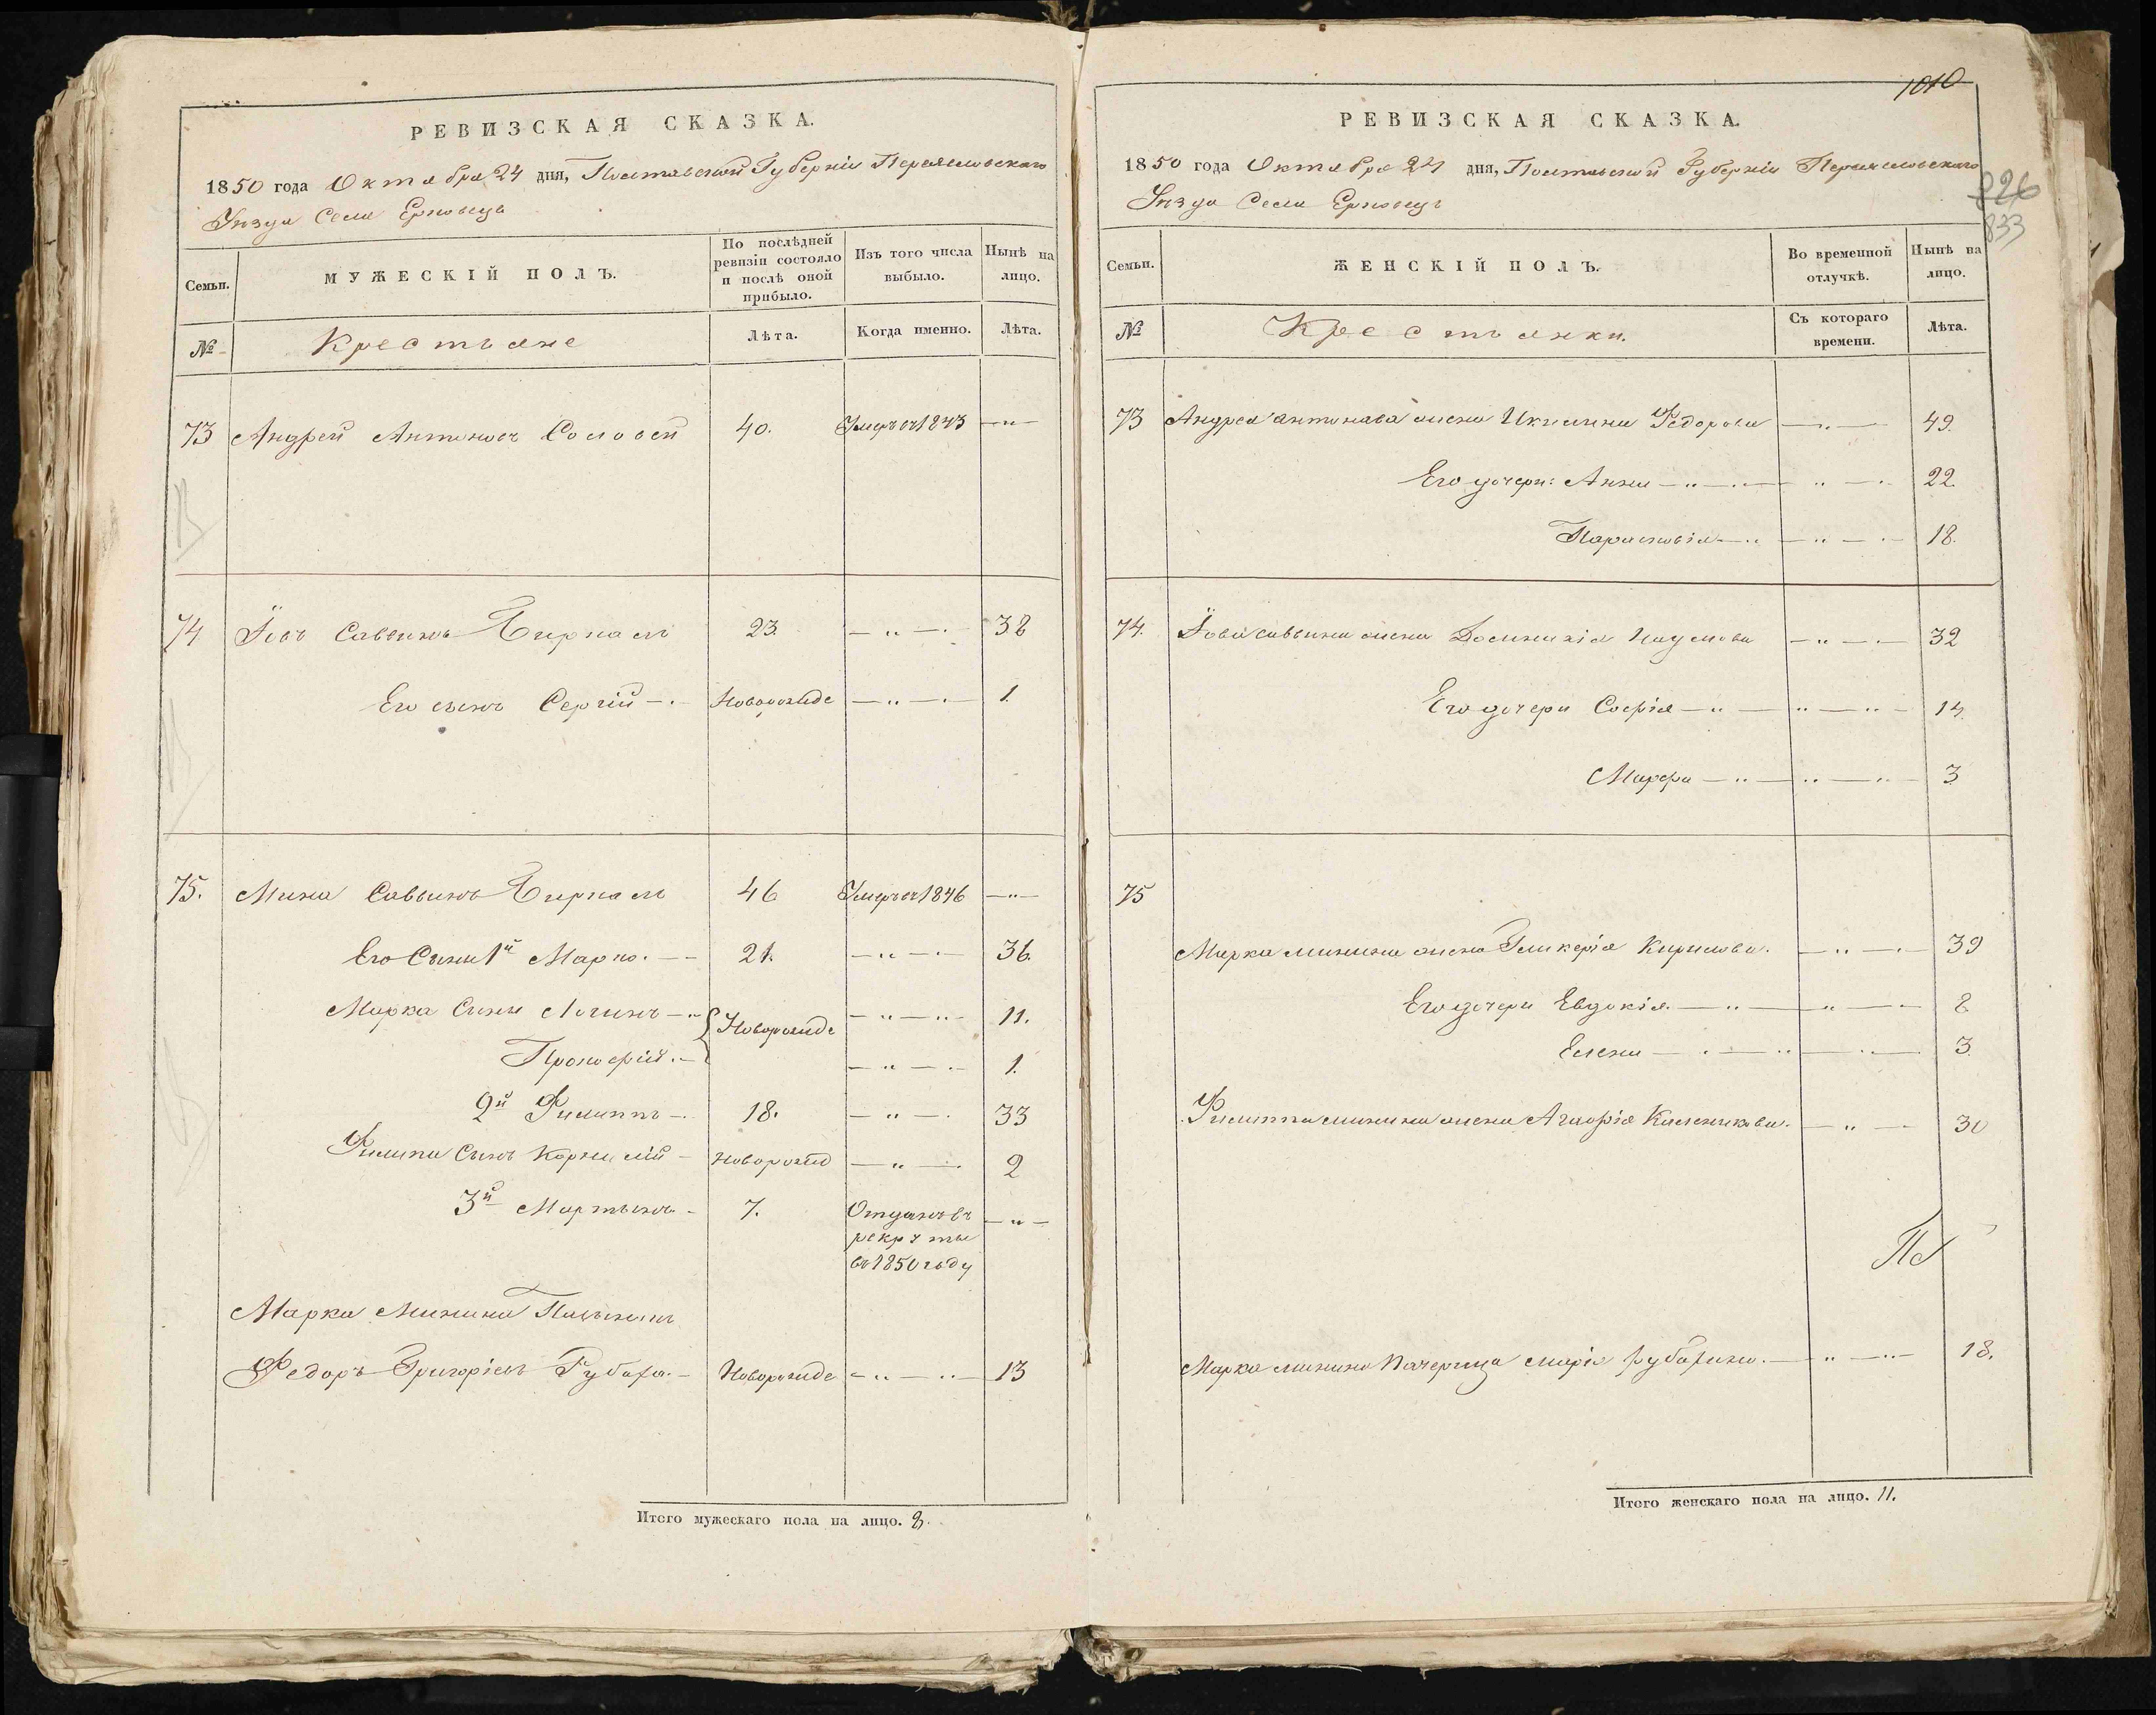 РЕВИЗСКАЯ СКАЗКА.
1850 года Октября 24 дня, Полтавской Губерніи Переяславскаго
Уѣзда Села Ерковецъ
Семьи.
МУЖЕСКІЙ ПОЛЪ.
По послѣдней ревизіи состояло и послѣ оной прибыло.
Изъ того числа выбыло.
Нынѣ на лицо.
№
Крестьяне
Лѣта.
Когда именно.
Лѣта.
73 Андрей Антоновъ Соловей 40. Умеръ въ 1843 —"—
74 Іовъ Саввинъ 23. —"—. 38
Его сынъ Сергій —. Новорожде —"—. 1.
75. Мина Саввинъ 46 Умеръ въ 1846 —"—
Его Сыны 1й Марко. — 21. —"—. 36.
Марка Сыны Логинъ — Новорожде —"—"— 11.
Прокофій. — —"—. 1.
2й Филиппъ —. 18. —"—. 33
Филипа Сынъ Корнилій — новорожд —"—. 2
3й Мартынъ — 7. Отданъ въ —"—
рекруты
въ 1850 году
Марка Минина Пасынокъ
Федоръ Григоріевъ Губаря. — Новорожде —"—"— 13
Итого мужескаго пола на лицо. 8.
1010
РЕВИЗСКАЯ СКАЗКА.
1850 года Октября 24 дня, Полтавской Губерніи Переяславскаго
Уѣзда Села Ерковецъ
826
833
Семьи.
ЖЕНСКІЙ ПОЛЪ.
Во временной отлучкѣ.
Нынѣ на лицо.
№
Крестьянки.
Съ котораго времени.
Лѣта.
73 Андрея Антонова жена Федорова —"— 49.
Его дочери: Анна —"—"—"—. 22.
Парасковія —"—"—. 18.
74. Іова Саввина жена Домникія Наумова —"—. 32
Его дочери Софія —"—"—"— 14.
Марфа —"—"—"— 3
75
Марка Минина жена Гликерія Кирилова. —"—. 39
Его дочери Евдокія. —"—"— 8
Елена —.—"—"— 3.
Филиппа Минина жена Агафія Калениковa. —"— 30
Марка Минина Падчерица Марія Губарина. —"—"— 18.
Итого женскаго пола на лицо. 11.